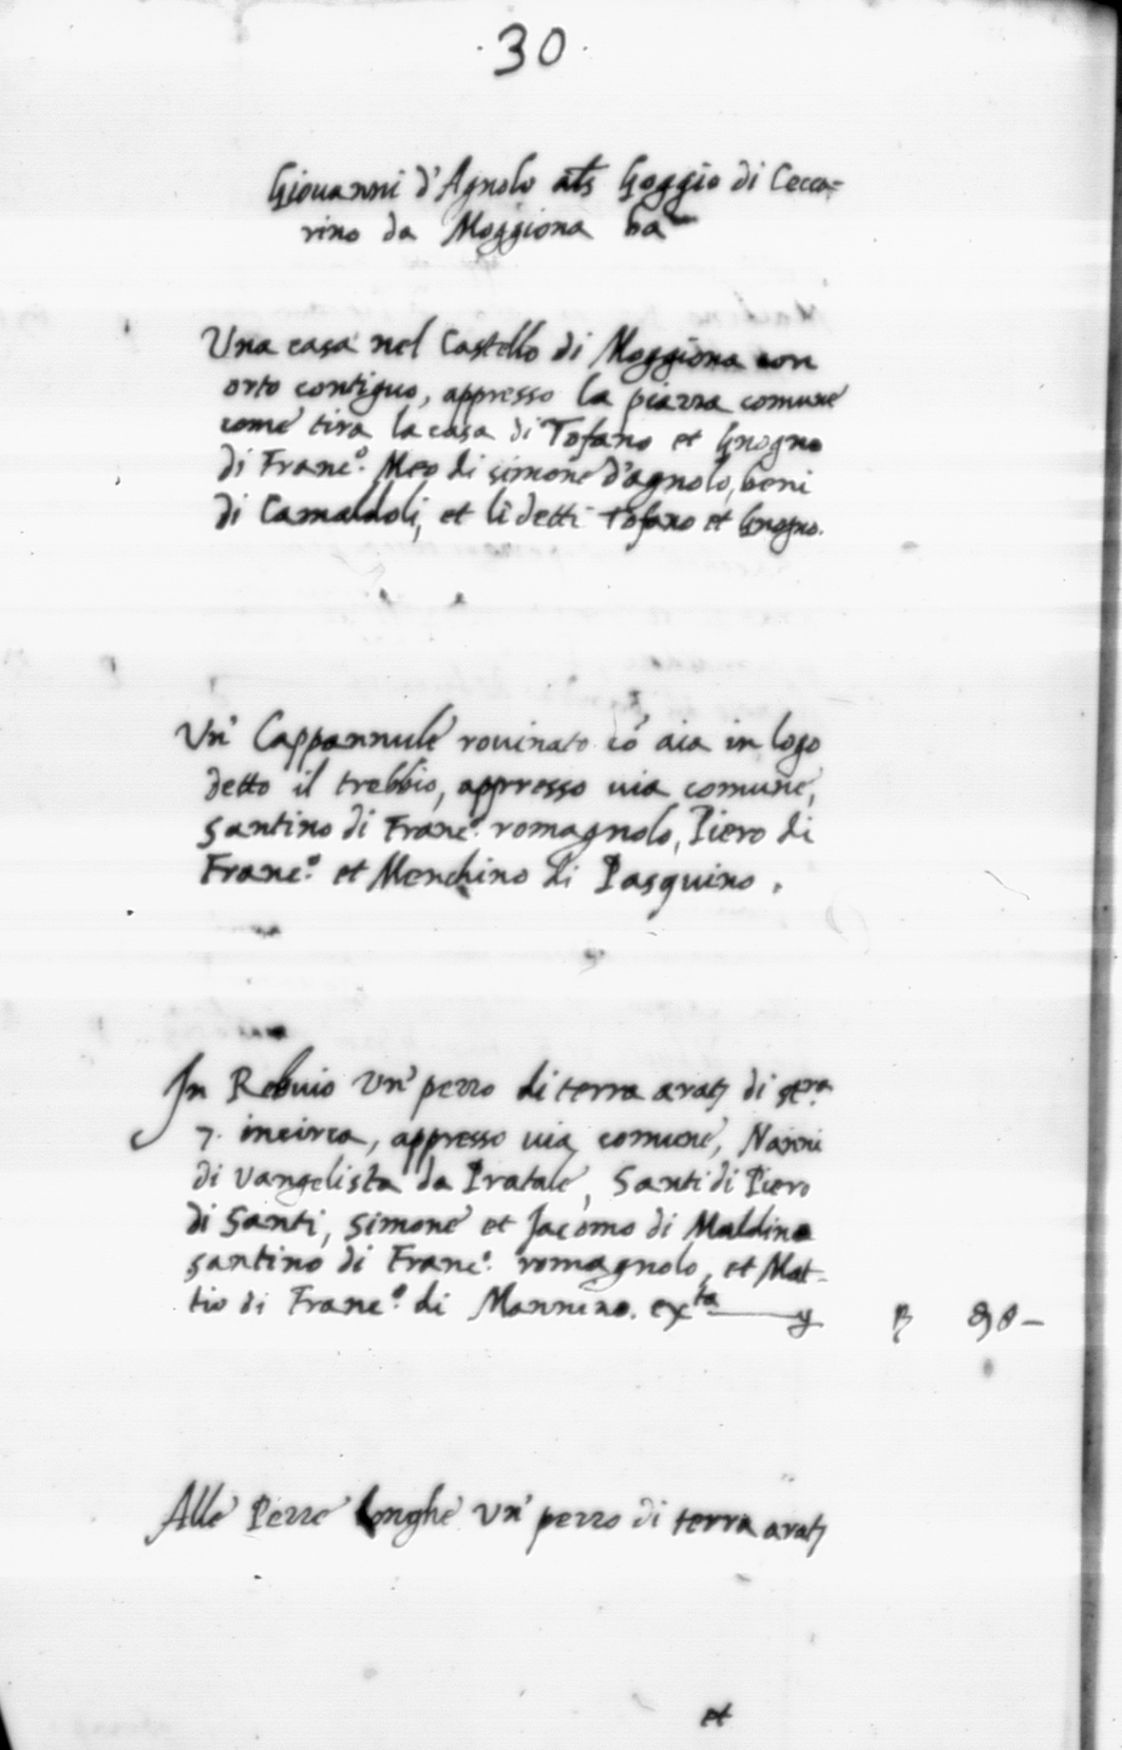 ·30·
Giouanni d'Agnolo als Goggio di Cecca=
rino da Moggiona ha
Una casa nel Castello di Moggiona con
orto contiguo, appresso la piazza comune
come tira la casa di Tofano et Gnogno
di Franc.º Meo di simone d'agnolo, beni
di Camaldoli, et li detti Tofano et Gnogno.
Un' Cappannule rouinato cō aia in logo
detto il trebbio, appresso uia comune,
santino di Franc.º romagnolo, Piero di
Franc.º et Menchino di Pasquino.
In Rebuio Un' pezzo di terra arat di
7. incirca, appresso uia comune, Nanni
di Vangelista da Pratale, Santi di Piero
di Santi, simone et Jacomo di Maldino
santino di Franc.º romagnolo, et Mat-
tio di Franc.º di Mannino. exta
Alle Pezze longhe Un' pezzo di terra arat
et